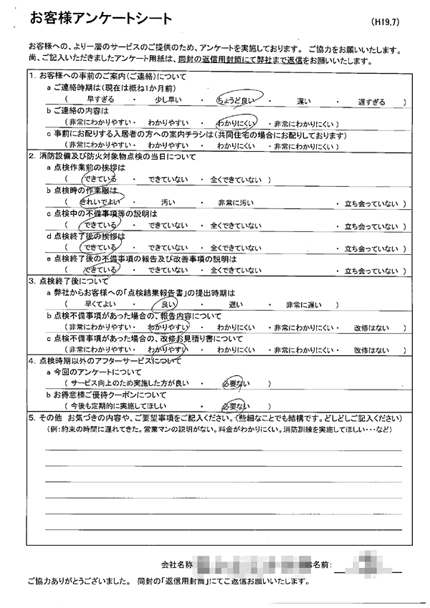 お客様アンケートシート
(H19.7)
お客様への、より一層のサービスのご提供のため、アンケートを実施しております。 ご協力をお願いいたします。
尚、ご記入いただきましたアンケート用紙は、同封の返信用封筒にて弊社まで返信をお願いいたします。
1. お客様への事前のご案内(ご連絡)について
a ご連絡時期は(現在は概ね1か月前)
( 早すぎる ・ 少し早い ・ ちょうど良い ・ 遅い ・ 遅すぎる )
b ご連絡の内容は
(非常にわかりやすい・ わかりやすい ・ わかりにくい ・非常にわかりにくい )
c 事前にお配りする入居者の方への案内チラシは(共同住宅の場合にお配りしております)
(非常にわかりやすい・ わかりやすい ・ わかりにくい ・非常にわかりにくい )
2. 消防設備及び防火対象物点検の当日について
a 点検作業前の挨拶は
( できている ・ できていない ・ 全くできていない ・立ち会っていない )
b 点検時の作業服は
( きれいでよい ・ 汚い ・ 非常に汚い ・立ち会っていない )
c 点検中の不備事項等の説明は
( できている ・ できていない ・ 全くできていない ・立ち会っていない )
d 点検終了後の挨拶は
( できている ・ できていない ・ 全くできていない ・立ち会っていない )
e 点検終了後の不備事項の報告及び改善事項の説明は
( できている ・ できていない ・ 全くできていない ・立ち会っていない )
3. 点検終了後について
a 弊社からお客様への「点検結果報告書」の提出時期は
( 早くてよい ・ 良い ・ 遅い ・ 非常に遅い )
b 点検不備事項があった場合の、報告内容について
(非常にわかりやすい・ わかりやすい ・ わかりにくい ・非常にわかりにくい・ 改修はない )
c 点検不備事項があった場合の、改修お見積り書について
(非常にわかりやすい・ わかりやすい ・ わかりにくい ・非常にわかりにくい・ 改修はない )
4. 点検時期以外のアフターサービスについて
a 今回のアンケートについて
( サービス向上のため実施した方が良い ・ 必要ない )
b お得意様ご優待クーポンについて
( 今後も定期的に実施してほしい ・ 必要ない )
5. その他 お気づきの内容や、ご要望事項をご記入ください。(些細なことでも結構です。どしどしご記入ください)
(例:約束の時間に遅れてきた。営業マンの説明がない。料金がわかりにくい。消防訓練を実施してほしい・・・など)
会社名称
名前:
ご協力ありがとうございました。 同封の「返信用封筒」にてご返信お願いいたします。